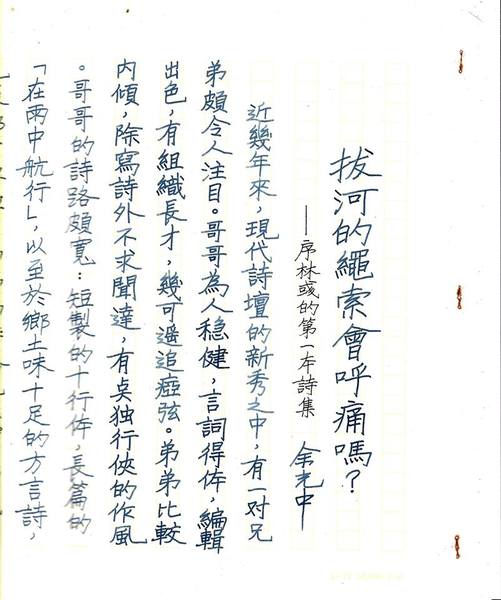 拔河的繩索會呼痛嗎?
——序林彧的第一本詩集
余光中
近幾年來,現代詩壇的新秀之中,有一对兄
弟頗令人注目。哥哥為人稳健,言詞得体,編輯
出色,有組織長才,幾可遥追瘂弦。弟弟比較
内傾,除寫詩外不求聞達,有点独行俠的作風
。哥哥的詩路頗寬:短製的十行体,長篇的
「在雨中航行」,以至於鄉土味十足的方言詩,